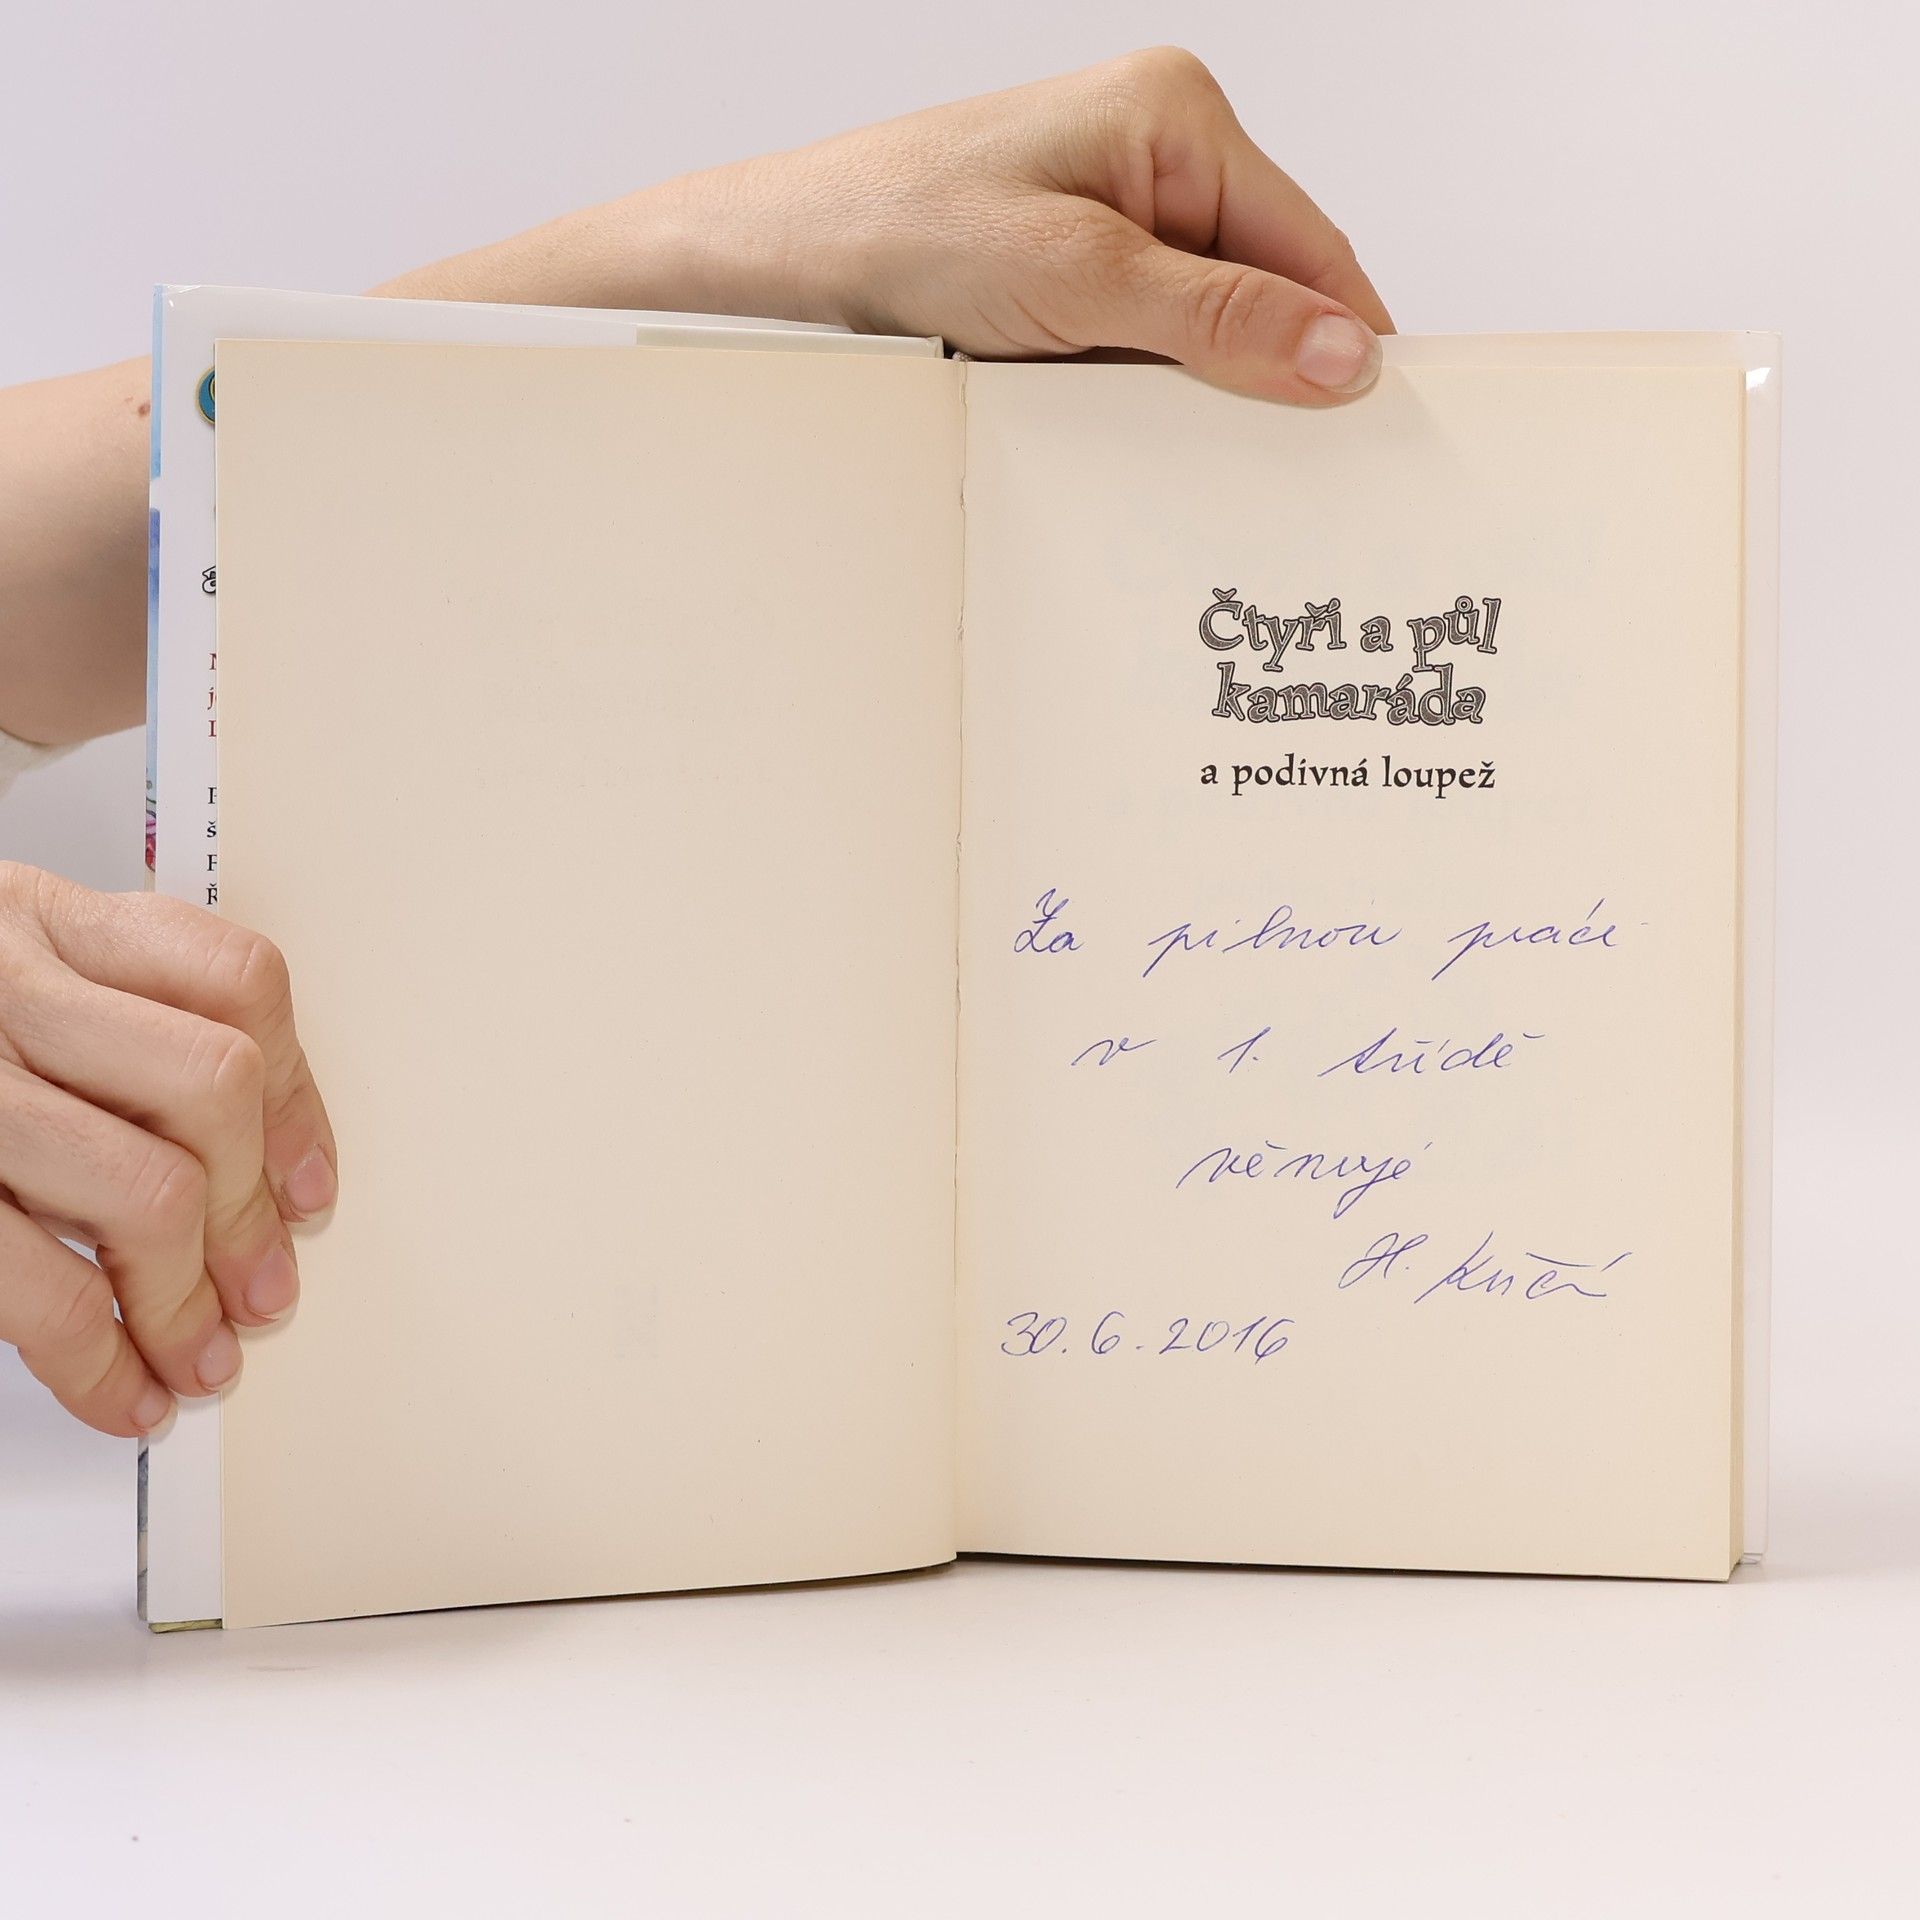 Čtyři a půl
kamaráda
a podivná loupež
Za pilnou práci
v 1. třídě
věnuje
H.
30. 6. 2016